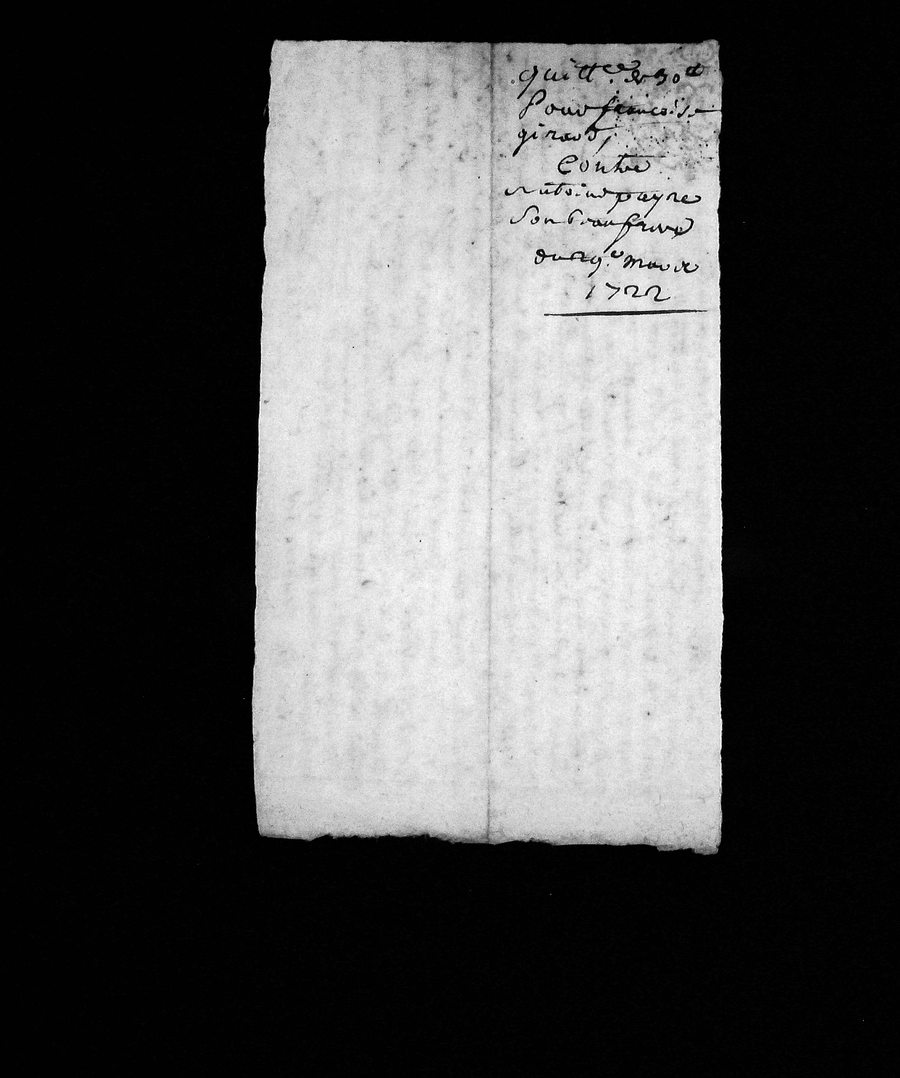 quitt.ce de 30 tt
Pour francoise
giraud,
Contre
Antoine payre
Son beau frere
du 29.e mars
1722